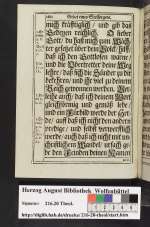 mich kräfftiglich / und gib das
Gedeyen reichlich. O lieber
Gott / du hast mich zum Wäch-
ter gesetzet über dein Volck / hilff
daß ich den Gottlosen warne /
und die Übertretter deine Weg
lehre / daß sich die Sünder zu dir
bekehren / und ihr viel zu deinem
Reich gewonnen werden. Ver-
leihe auch / daß ich deinem Wort
gleichförmig und gemäß lebe /
und ein Fürbild werde der Her-
de / auff daß ich nicht den andern
predige / und selbst verwerfflich
werde: auch daß ich nicht mit un-
christlichem Wandel ursach ge-
be den Feinden deinen Namen
Herzog August Bibliothek Wolfenbüttel
Signatur: 316.20 Theol.
http://diglib.hab.de/drucke/316-20-theol/start.htm